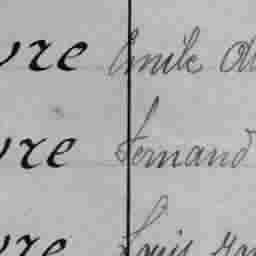 vre Emile
vre Fernand
vre Louis